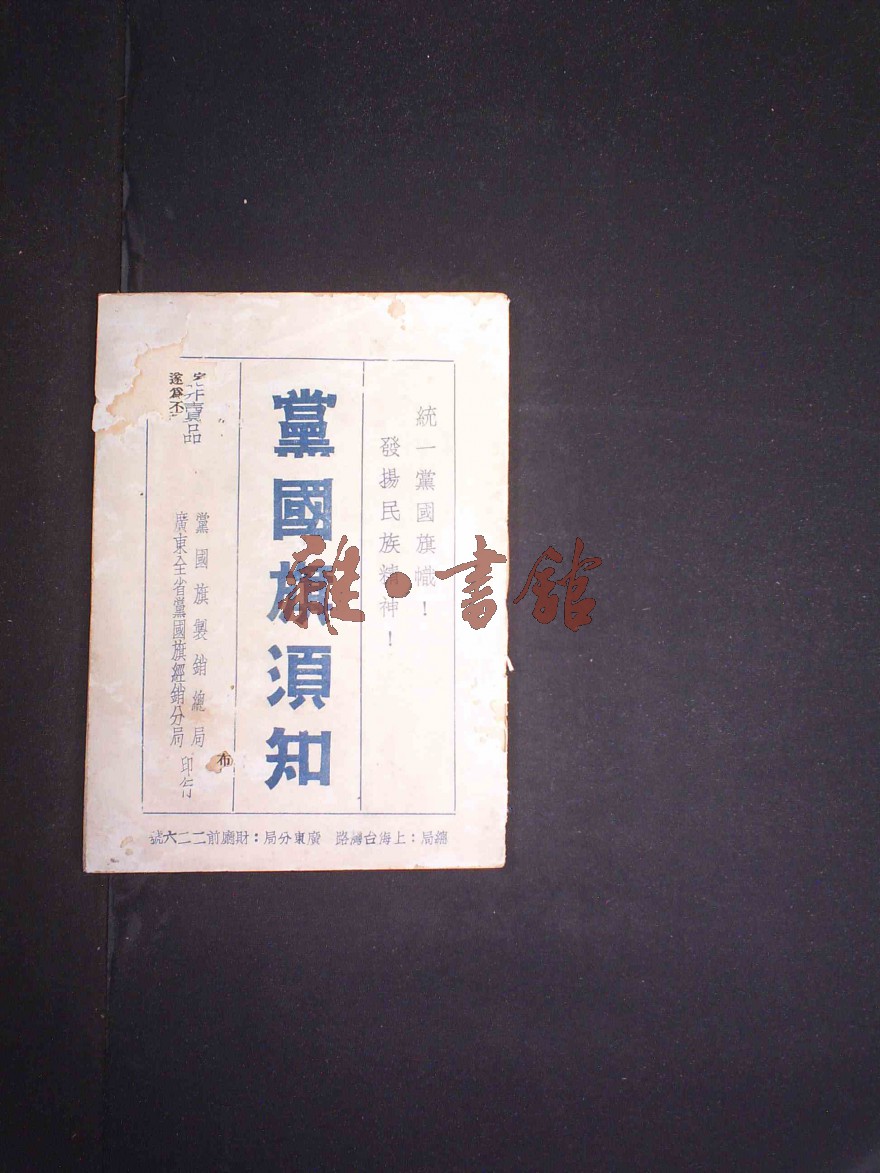 統一黨國旗幟！
發揚民族精神！
黨國旗須知
非賣品
黨國旗製銷總局
廣東全省黨國旗經銷分局
印行
布
總局：上海台灣路　廣東分局：財廳前二二六號
雜·書館